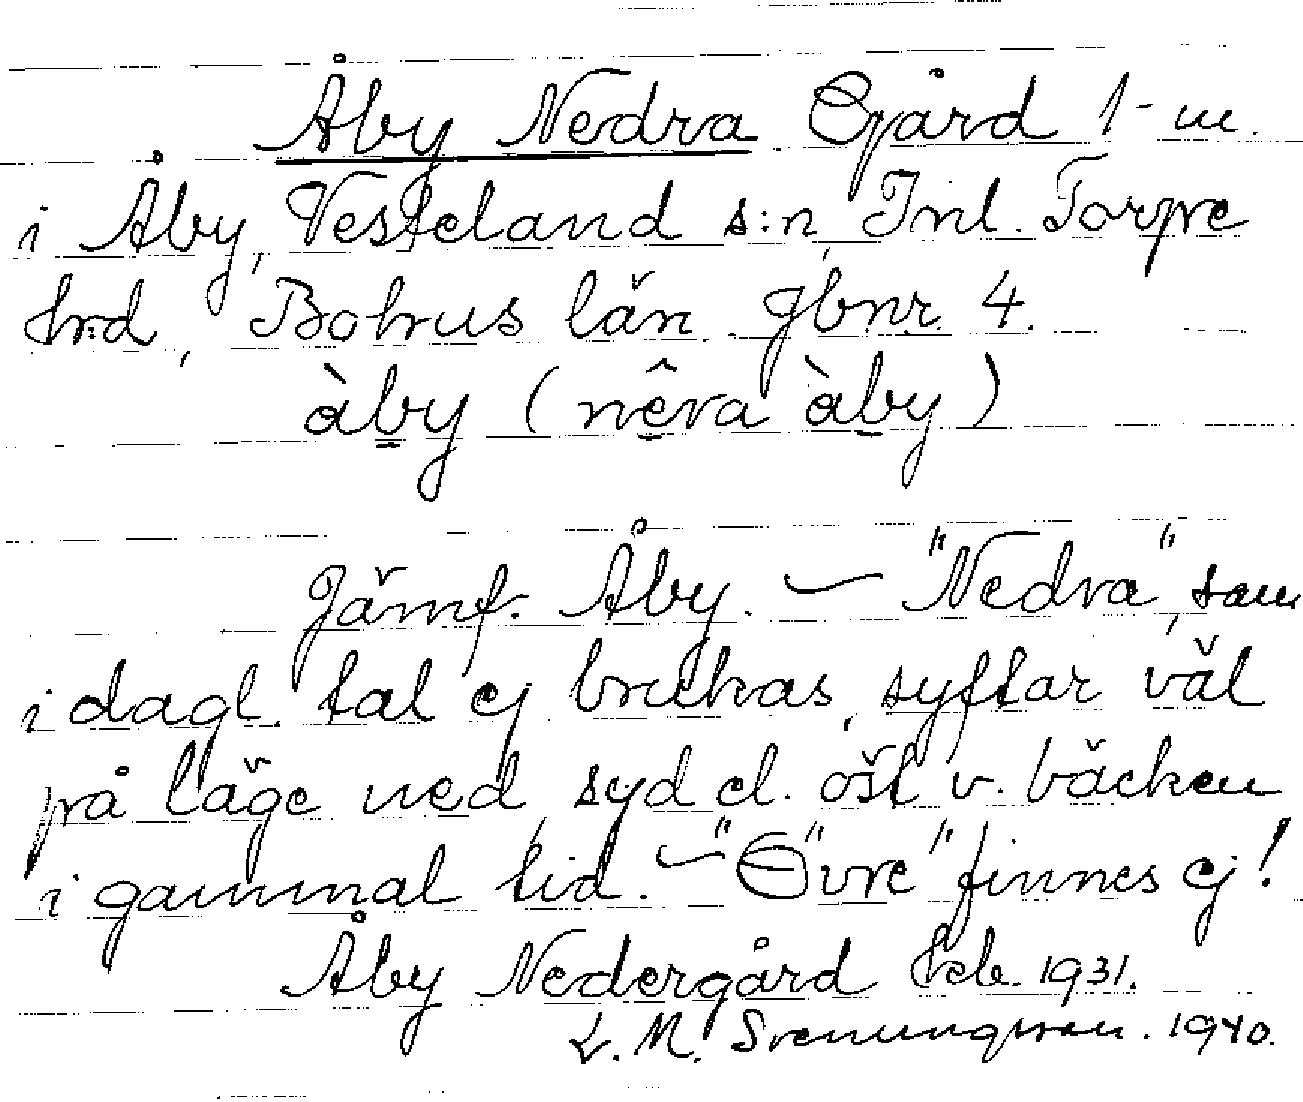 Åby Nedra Gård 1 - m.
i Åby, Vesteland s:n, Inl. Torpe
hrd, Bohus län. Jbnr. 4.
àby (nêva àby)
Jämf. Åby. — "Nedra", som
i dagl. tal ej brukas, syftar väl
på läge ned, syd el. öst v. bäcken
i gammal tid. — "Övre" finnes ej!
Åby Nedergård Kcb. 1931.
L. M. Svenungsson. 1940.